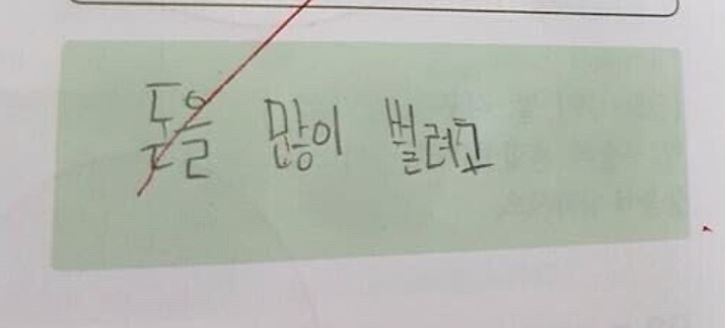 돈을 많이 벌려고